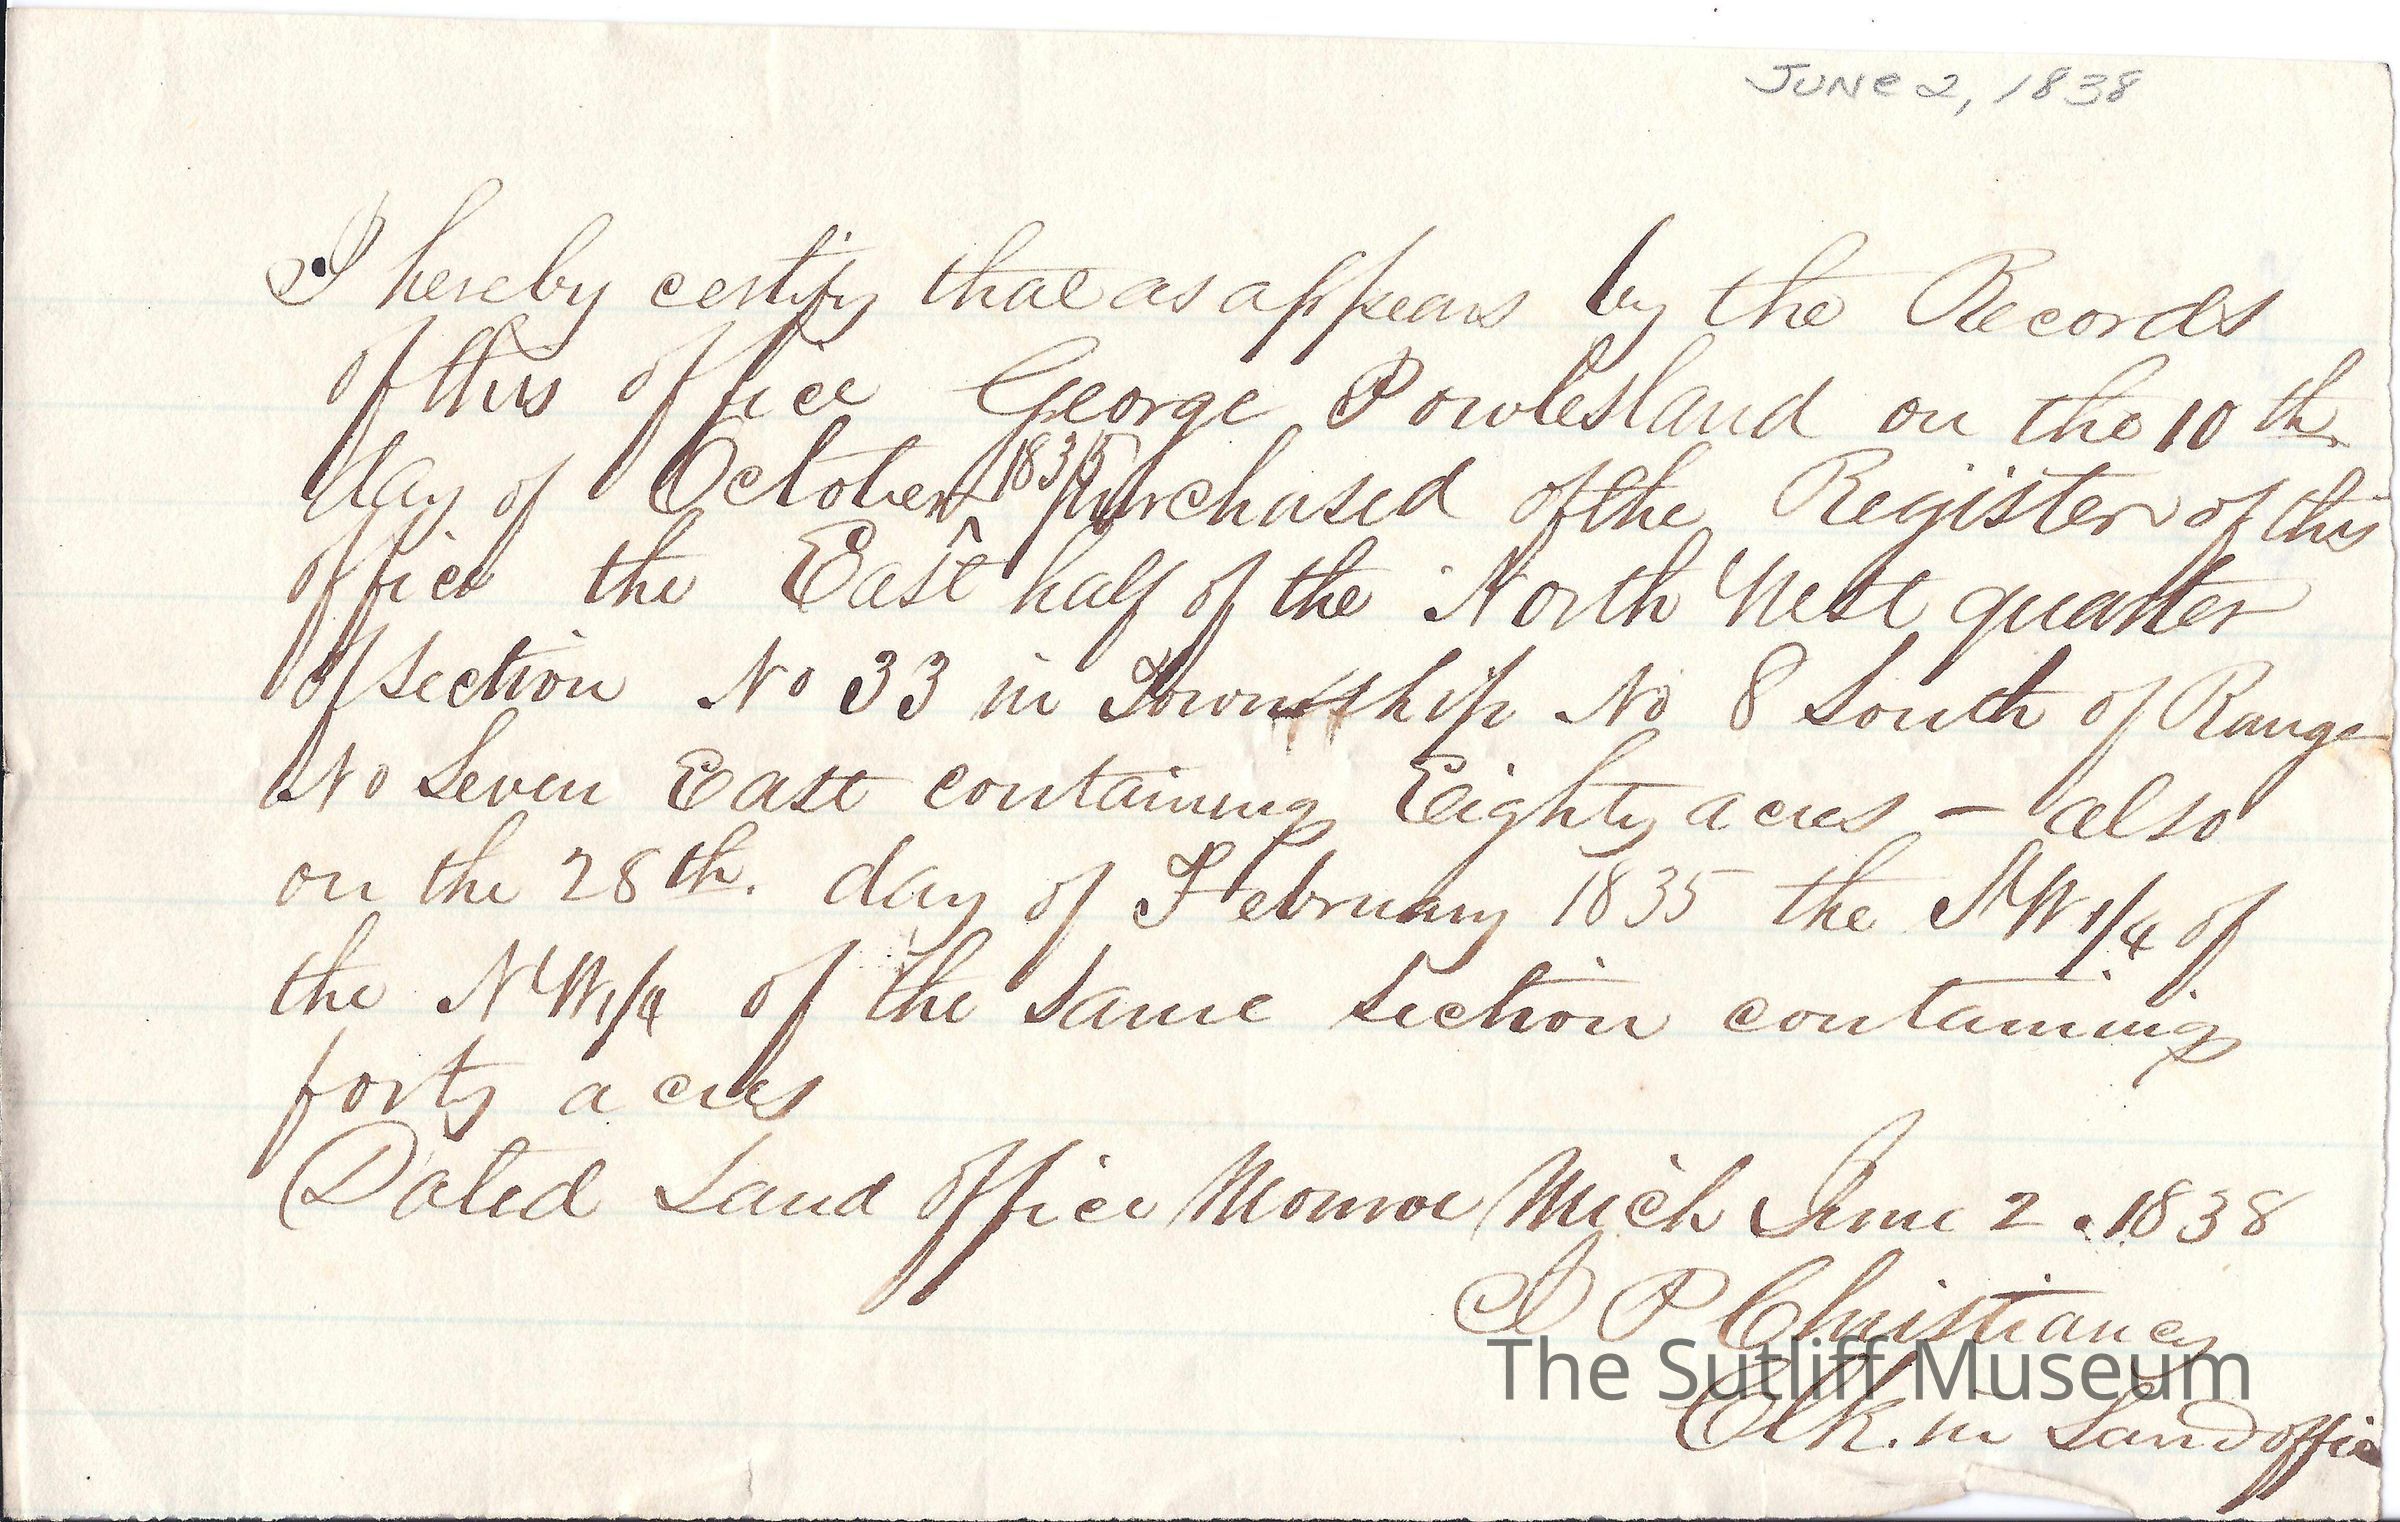 JUNE 2, 1838
I hereby certify that as appears by the Records
of this office George Powlesland on the 10th
day of October 1835 purchased of the Register of this
office the East half of the North West quarter
of section No 33 in Township No 8 South of Range
No Seven East containing Eighty acres - also
on the 28th. day of February 1835 the NW 1/4 of
the NW 1/4 of the same section containing
forty acres
Dated Land office Monroe Mich June 2. 1838
I P Christiancy
The Sutliff Museum
Clk. in Land office